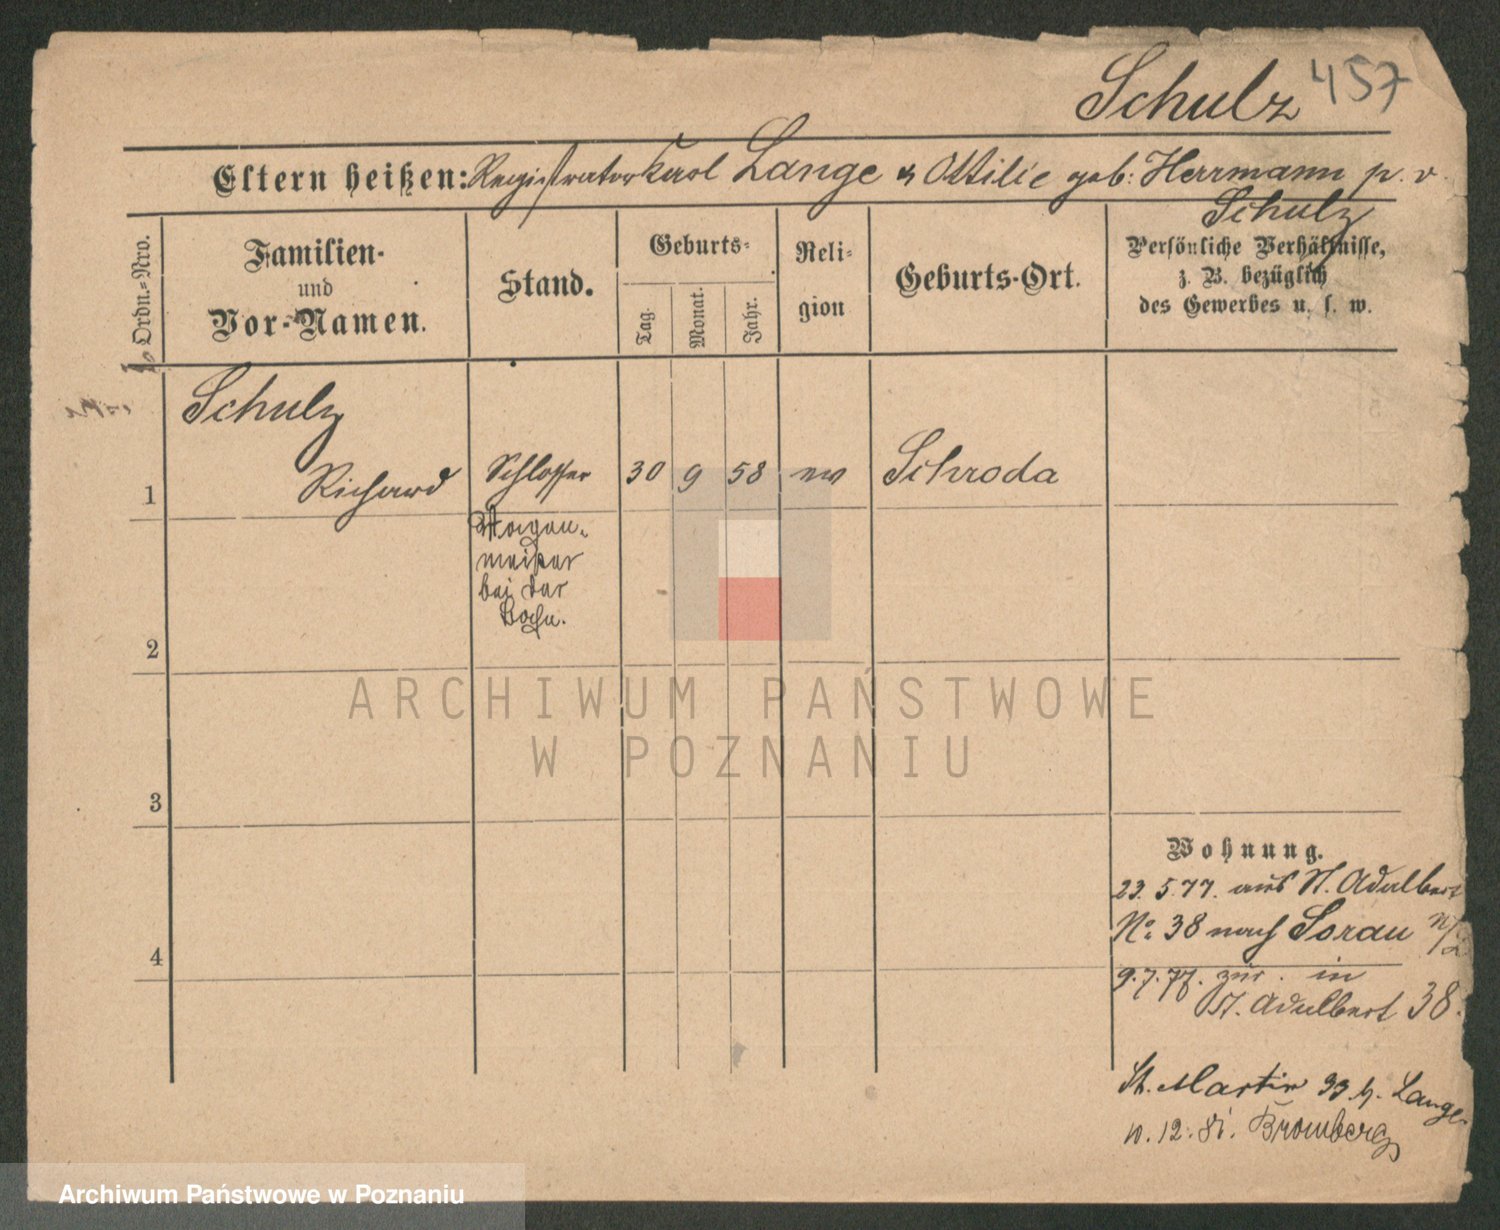 Schulz 457
Eltern heißen: Registrator Karl Lange & Ottilie geb: Herrmann p. v.
Schulz
Ordn.-Nro.
Familien-
und
Vor-Namen.
Stand.
Geburts-
Tag.
Monat.
Jahr.
Reli-
gion
Geburts-Ort.
Persönliche Verhältnisse,
z. B. bezüglich
des Gewerbes u. s. w.
Schulz
1 Richard Schlosser 30 9 58 ev Schroda
Wagen-
meister
bei der
Bahn.
2
3
4
Wohnung.
23.5.77. aus St. Adalbert
No: 38 nach Sorau N/L
9.7.77. zur. in
St. Adalbert 38.
St. Martin 33 b. Lange
12. 81. Bromberg
ARCHIWUM PAŃSTWOWE
W POZNANIU
Archiwum Państwowe w Poznaniu